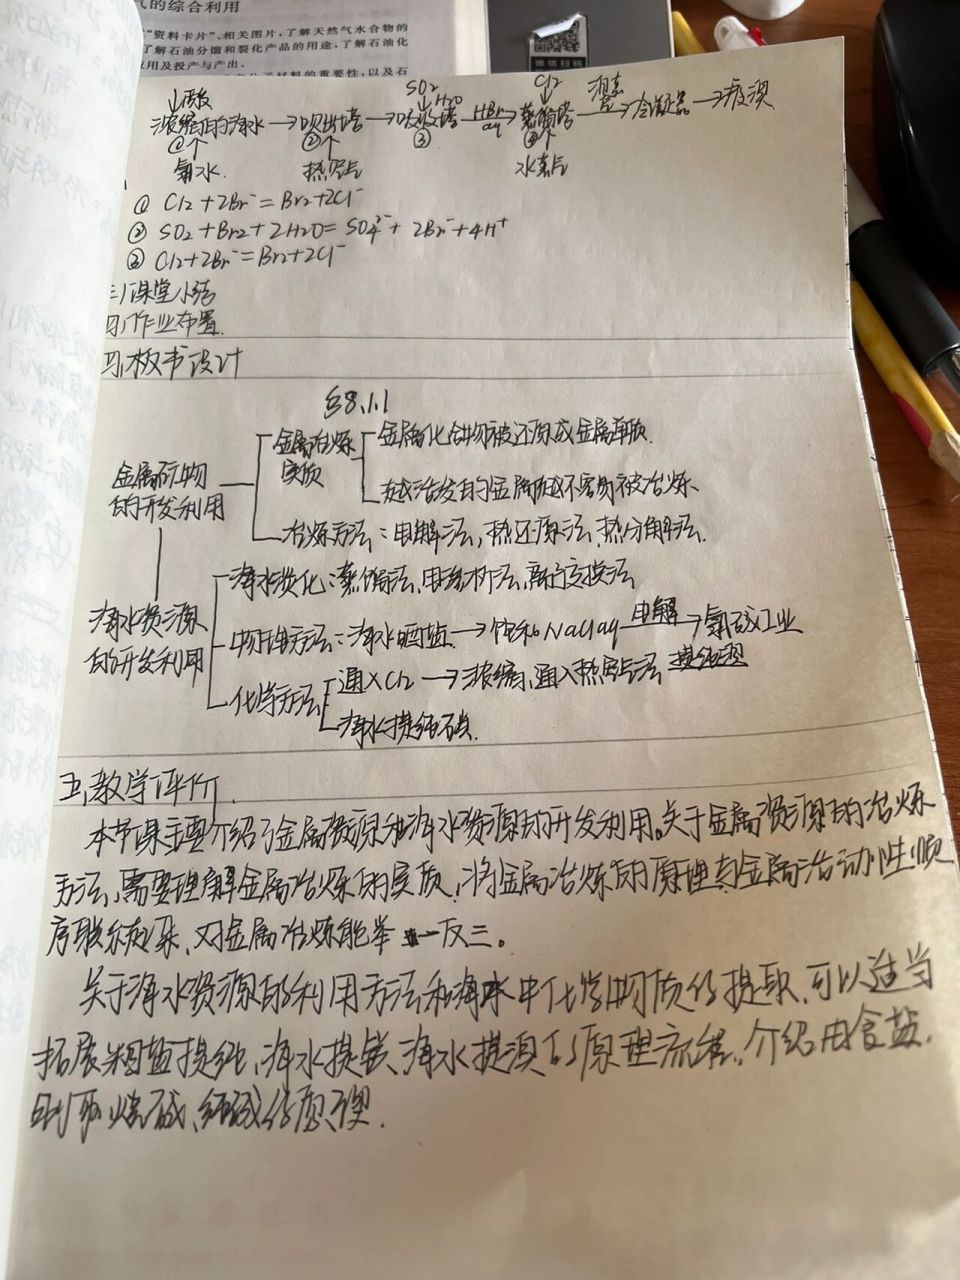 气的综合利用
"资料卡片"、相关图片,了解天然气水合物的
了解石油分馏和裂化产品的用途,了解石油化
应用及投产与产出。
材料的重要性,以及石
微信扫码
酸
SO₂
Cl₂
浓缩的海水→吹出塔→吸收塔 HBr aq→蒸馏塔→冷凝器→液溴
H₂O
① ② ③ ④
氯水 热空气 水蒸气
① Cl₂+2Br⁻=Br₂+2Cl⁻
② SO₂+Br₂+2H₂O=SO₄²⁻+2Br⁻+4H⁺
③ Cl₂+2Br⁻=Br₂+2Cl⁻
三、课堂小结
四、作业布置
四、板书设计
§8.1.1
金属矿物的开发利用
金属冶炼实质
金属化合物被还原成金属单质.
越活泼的金属越不容易被冶炼.
冶炼方法:电解法,热还原法,热分解法.
海水资源的开发利用
海水淡化:蒸馏法、电渗析法、离子交换法
物理方法:海水晒盐→饱和NaClaq 电解→氯碱工业
化学方法
通入Cl₂→浓缩,通入热空气法 提纯溴
海水提
五、教学评价.
本节课主要介绍了金属资源和海水资源的开发利用。关于金属资源的冶炼
方法,需要理解金属冶炼的实质,将金属冶炼的原理与金属活动性顺
序联系起来,对金属冶炼能举一反三。
关于海水资源的利用方法和海水中化学物质的提取,可以适当
拓展粗盐提纯、海水提镁、海水提溴的原理流程,介绍由食盐
制取烧碱、纯碱的原理.